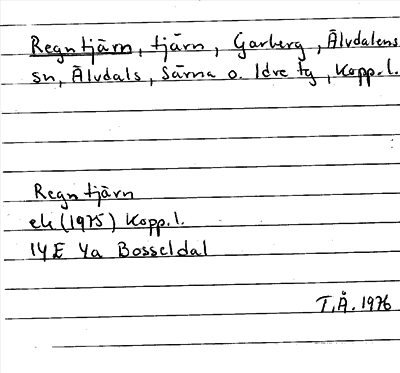 Regntjärn, tjärn, Garberg, Älvdalens
sn, Älvdals, Särna o. Idre tg, Kopp. l.
Regntjärn
ek (1975) Kopp. l.
14E 4a Bosseldal
T.Å. 1976